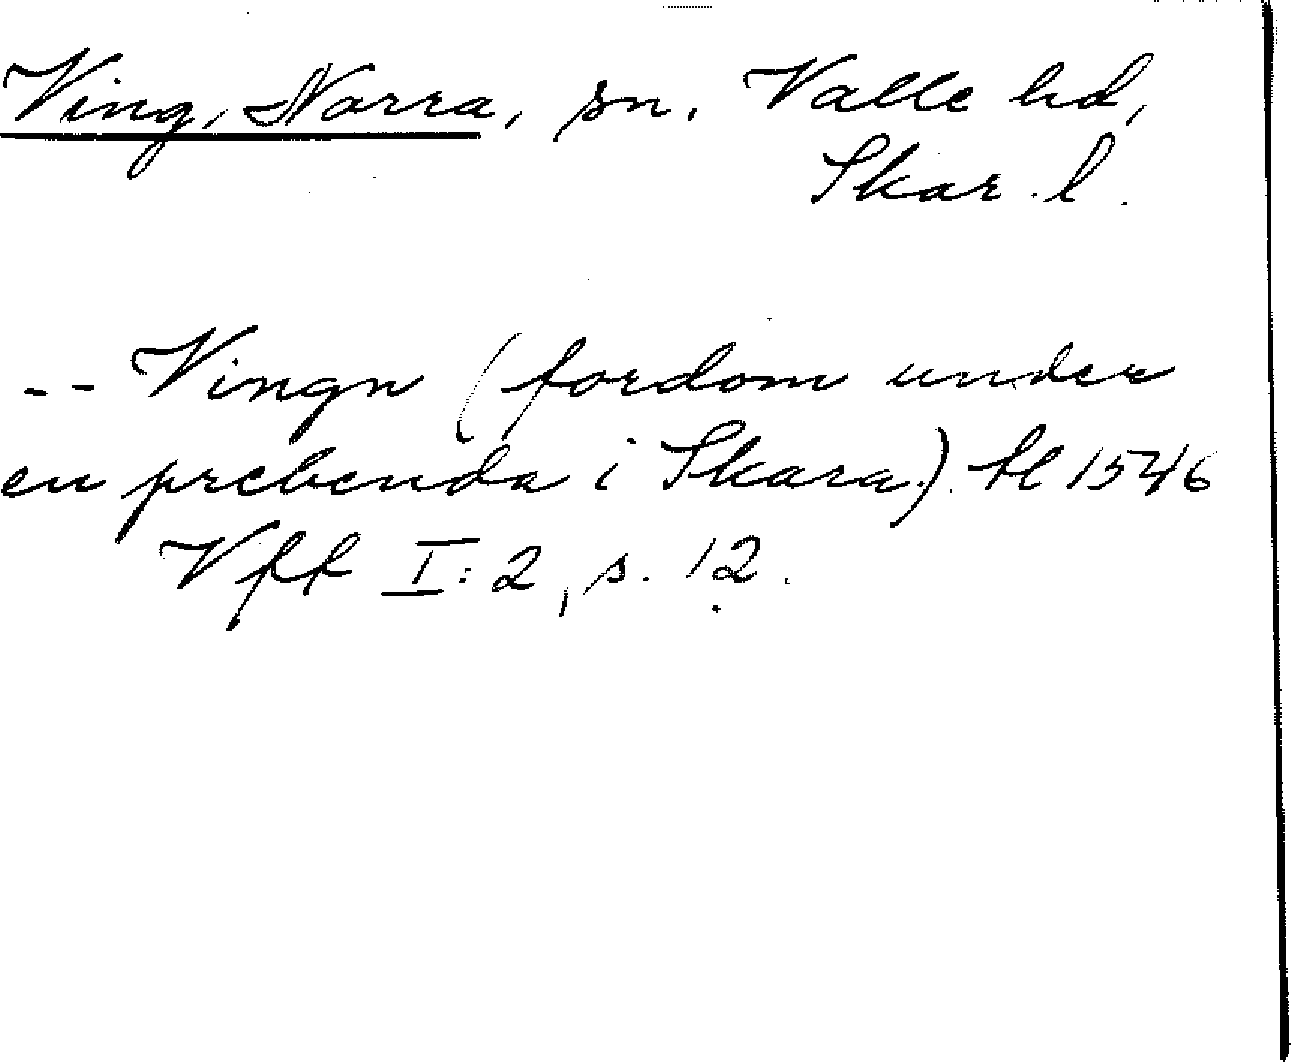 Ving, Norra, sn. Valle hd,
Skar. l.
-- Vingn (fordom under
en prebenda i Skara). hl 1546
Vff I:2, s. 12.